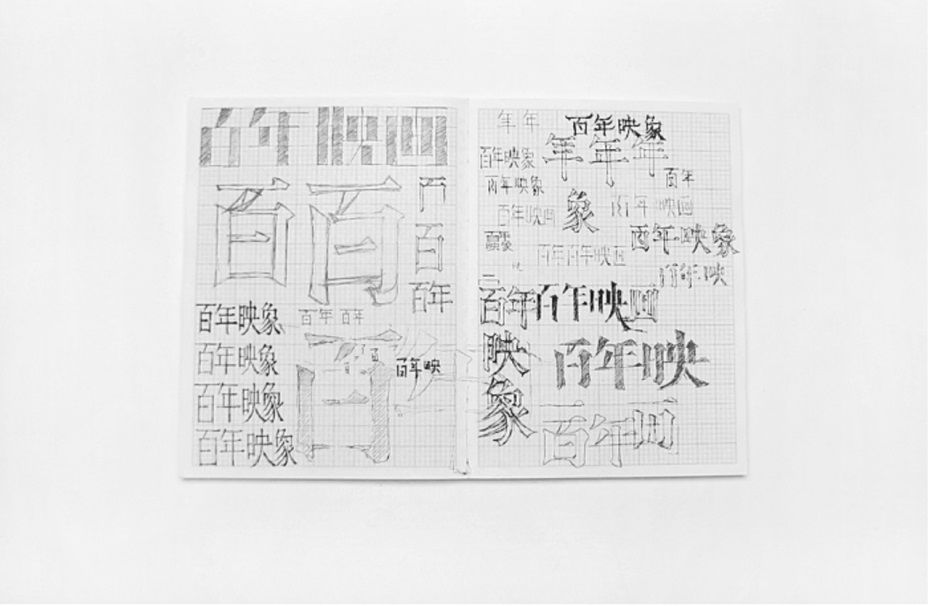 百年映画
百百
百
百年
百年映象
百年 百年
百年映象
百年映
百年映象
百年映象
百
年年
百年映象
年年年
百年映象
百年
百年映象
象
百年映画
百年映画
百年映象
百年百年映画
百年映
百年映象
百年映画
百年映
百年画